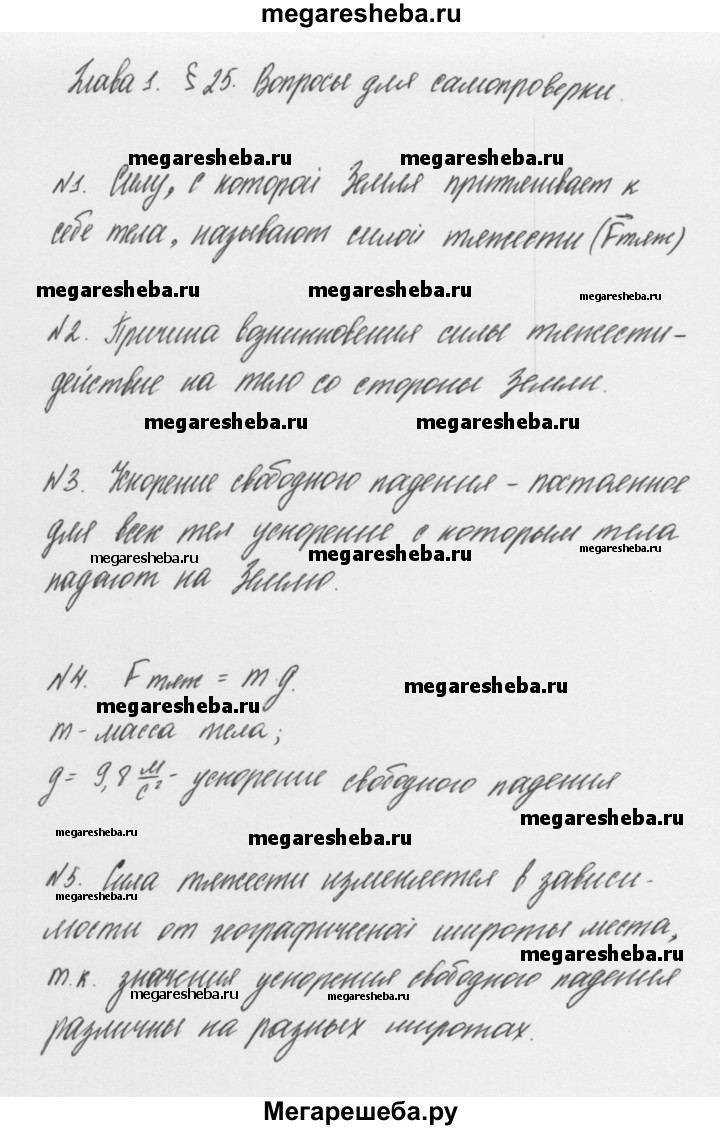 megaresheba.ru
Глава 1. § 25. Вопросы для самопроверки.
megaresheba.ru megaresheba.ru
№1. Силу, с которой Земля притягивает к
себе тела, называют силой тяжести (Fтяж)
megaresheba.ru megaresheba.ru megaresheba.ru
№2. Причина возникновения силы тяжести -
действие на тело со стороны Земли.
megaresheba.ru megaresheba.ru
№3. Ускорение свободного падения - постоянное
для всех тел ускорение с которым тела
megaresheba.ru megaresheba.ru megaresheba.ru
падают на Землю.
№4. Fтяж = m·g.
megaresheba.ru megaresheba.ru
m - масса тела;
g = 9,8 м/с² - ускорение свободного падения
megaresheba.ru megaresheba.ru megaresheba.ru
№5. Сила тяжести изменяется в зависи-
megaresheba.ru
мости от географической широты места,
megaresheba.ru
т.к. значения ускорения свободного падения
megaresheba.ru megaresheba.ru
различны на разных широтах.
Мегарешеба.ру